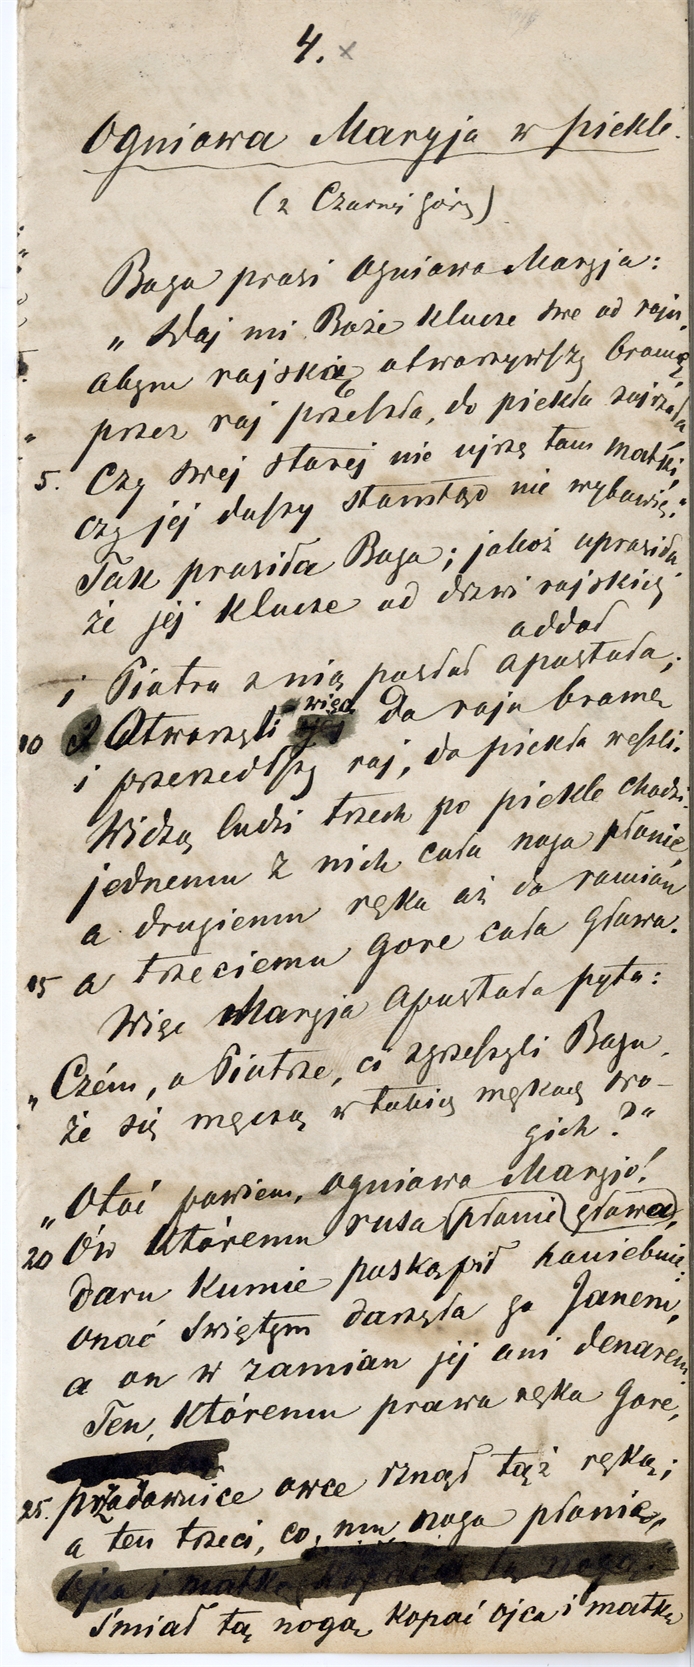 4. x
Ogniowa Maryja w piekle.
(z Czarnej góry)
Boga prosi Ogniowa Maryja:
„Daj mi Boże klucze swe od raju,
abym rajską otworzywszy bramę,
przez raj przeszła, do piekła zajrzała
5. Czy swej starej nie ujrzę tam matki,
czy jej duszy stamtąd nie wybawię."
Tak prosiła Boga; jakoż uprosiła
że jej klucze od drzwi rajskich
oddał
i Piotra z nią posłał apostoła;
więc
10 Otworzyli jej do raju bramę
i przeszedłszy raj, do piekła weszli.
Widzą ludzi trzech po piekle chodzi:
jednemu z nich cała noga płonie,
a drugiemu ręka aż do ramion
15 a trzeciemu gore cała głowa.
Więc Maryja Apostoła pyta:
„Czém, o Piotrze, ci zgrzeszyli Bogu,
że się męczą w takich mękach sro-
gich?"
„Otoć powiem, ogniowa Maryjo!
20 Ów któremu rusa płonie głowa,
daru kumie poskąpił haniebnie:
onać Świętym darzyła go Janem,
a on w zamian jej ani denarem.
Ten, któremu prawa ręka gore,
25. przodownice owce rznął tąż ręką;
a ten trzeci, co mu noga płonie,
ojca i matkę kopał tą nogą."
śmiał tą nogą kopać ojca i matkę